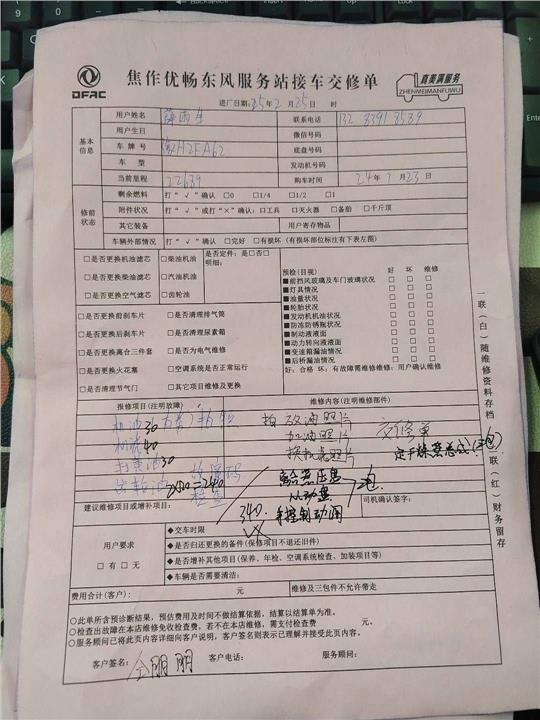 DFAC
焦作优畅东风服务站接车交修单
真美满服务
ZHENMEIMANFUWU
进厂日期:25年2月25日 时
基本信息
用户姓名 联系电话 132 8391 8589
用户生日 微信号码
车牌号 豫H2FA62 底盘号码
车型 发动机号码
当前里程 22689 购车时间 24年2月23日
修前状态
剩余燃料 打“√”确认 □0 □1/4 □1/2 □1
附件状况 打“√”或打“×”确认:□工具 □灭火器 □备胎 □千斤顶
其它装备 用户寄存物品
车辆外部情况 打“√”确认 □完好 □有损坏(有损坏部位标注有下表左图)
□是否更换机油滤芯 □柴油机油 是否定件:是□否□
□是否更换柴油滤芯 □汽油机油 明细:
□是否更换空气滤芯 □齿轮油
□是否更换前刹车片 □是否清理排气筒
□是否更换后刹车片 □是否清理尿素箱
□是否更换离合三件套 □是否为电气维修
□是否更换火花塞 □空调系统是否正常运行
□是否清理节气门 □其它项目维修及更换
预检(目视) 好 坏 维修
■前挡风玻璃及车门玻璃状况 □ □ □
■灯具情况 □ □ □
■油量状况 □ □ □
■轮胎状况 □ □ □
■发动机机油状况 □ □ □
■防冻防锈瓶状况 □ □ □
■制动液液面 □ □ □
■动力转向液液面 □ □ □
■变速箱漏油情况 □ □ □
■后桥漏油情况 □ □ □
好:合格 坏:有故障需维修维修:用户确认维修
报修项目(注明故障) 维修内容(注明维修部件)
30
40
30
=240
检查
拍 照片
加油照片
换机 照片
交修单
离合器压盘
从动盘
340
手控制动阀
建议维修项目或增补项目: 司机确认签字:
用户要求
□有 □无
◆交车时限
◆是否归还更换的备件(保修项目不退还旧件)
◆是否增补其他项目(保养、年检、空调系统检查、加装项目等)
◆车辆是否需要清洁:
费用合计(客户): 元 维修及三包件不允许带走
○此单所含预诊断结果,预估费用及时间不做结算依据,结算以结算单为准。
○检查出故障在本店维修免收检查费,若不在本店维修,需支付检查费 元。
○服务顾问已将此页内容详细向客户说明,客户签名则表示已理解并接受此页内容。
客户签名: 客户电话: 服务顾问:
一联(白)随维修资料存档
二联(红)财务留存